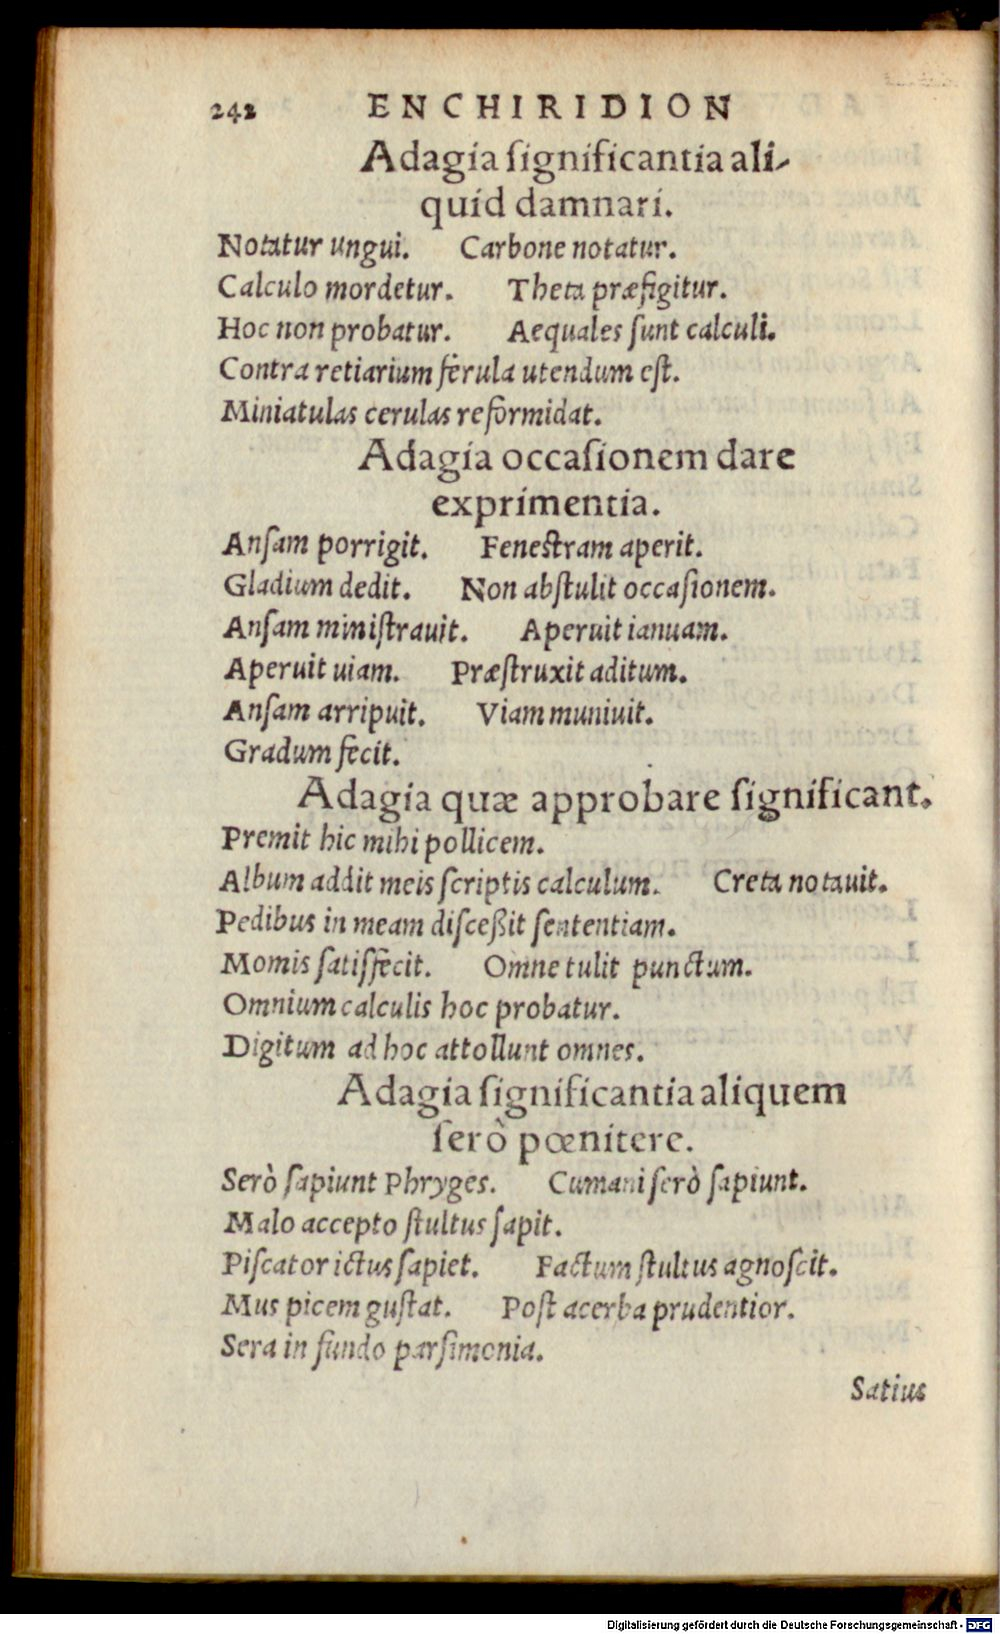 242 ENCHIRIDION
Adagia ſignificantia ali-
quid damnari.
Notatur ungui. Carbone notatur.
Calculo mordetur. Theta præfigitur.
Hoc non probatur. Aequales ſunt calculi.
Contra retiarium ferula utendum eſt.
Miniatulas cerulas reformidat.
Adagia occaſionem dare
exprimentia.
Anſam porrigit. Feneſtram aperit.
Gladium dedit. Non abſtulit occaſionem.
Anſam miniſtrauit. Aperuit ianuam.
Aperuit uiam. Præſtruxit aditum.
Anſam arripuit. Viam muniuit.
Gradum fecit.
Adagia quæ approbare ſignificant.
Premit hic mihi pollicem.
Album addit meis ſcriptis calculum. Creta notauit.
Pedibus in meam diſceßit ſententiam.
Momis ſatisfecit. Omne tulit punctum.
Omnium calculis hoc probatur.
Digitum ad hoc attollunt omnes.
Adagia ſignificantia aliquem
ſerò pœnitere.
Serò ſapiunt Phryges. Cumani ſerò ſapiunt.
Malo accepto ſtultus ſapit.
Piſcator ictus ſapiet. Factum ſtultus agnoſcit.
Mus picem guſtat. Poſt acerba prudentior.
Sera in fundo parſimonia.
Satius
Digitalisierung gefördert durch die Deutsche Forschungsgemeinschaft - DFG